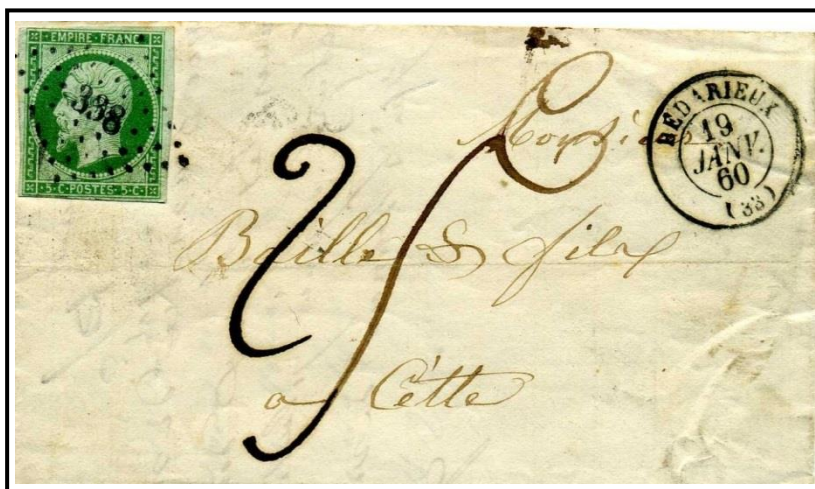 EMPIRE FRANC
338
5·C·POSTES·5·C
BÉDARIEUX
19
JANV.
60
(33)
Monsieur
25
Baille & fils
a Cette